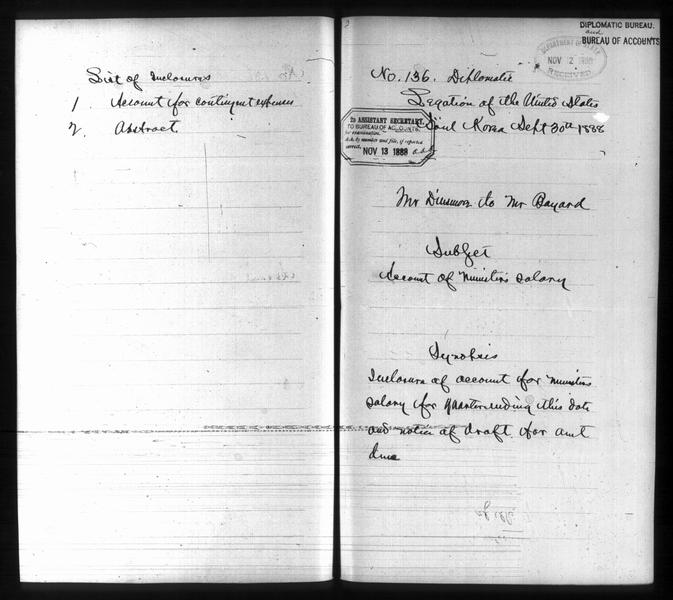 List of Inclosures
1. Account for contingent expenses
2. Abstract.
DIPLOMATIC BUREAU.
and
BUREAU OF ACCOUNTS
DEPARTMENT OF STATE
NOV 12 1888
RECEIVED
No. 136. Diplomatic
Legation of the United States
Söul Korea Sept 30th 1888
2D ASSISTANT SECRETARY,
TO BUREAU OF ACCOUNTS,
for examination.
Ack. by number and file, if reported
correct.
NOV 13 1888
Mr Dinsmore to Mr Bayard
Subject
Account of Ministers salary
Synopsis
Inclosure of account for Ministers
salary for Quarter ending this date
and notice of draft for amt
due